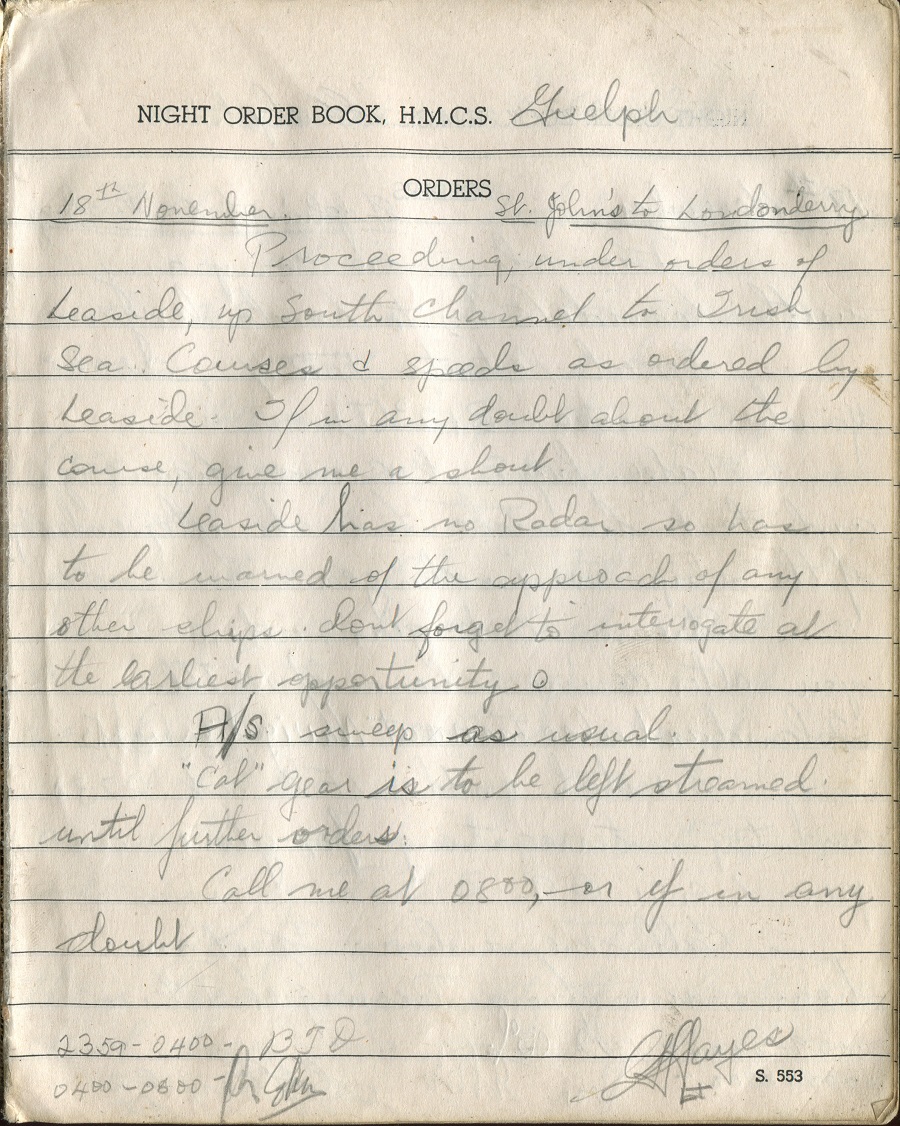 NIGHT ORDER BOOK, H.M.C.S. Guelph
ORDERS
18th November. St. John's to Londonderry
Proceeding, under orders of
Leaside, up South Channel to Irish
Sea. Courses & speeds as ordered by
Leaside. If in any doubt about the
course, give me a shout.
Leaside has no Radar so has
to be warned of the approach of any
other ships. dont forget to interrogate at
the earliest opportunity
A/S sweep as usual.
"Cat" gear is to be left streamed
until further orders.
Call me at 0800, or if in any
doubt
2359-0400- BJD
0400-0800-
GHayes
S. 553